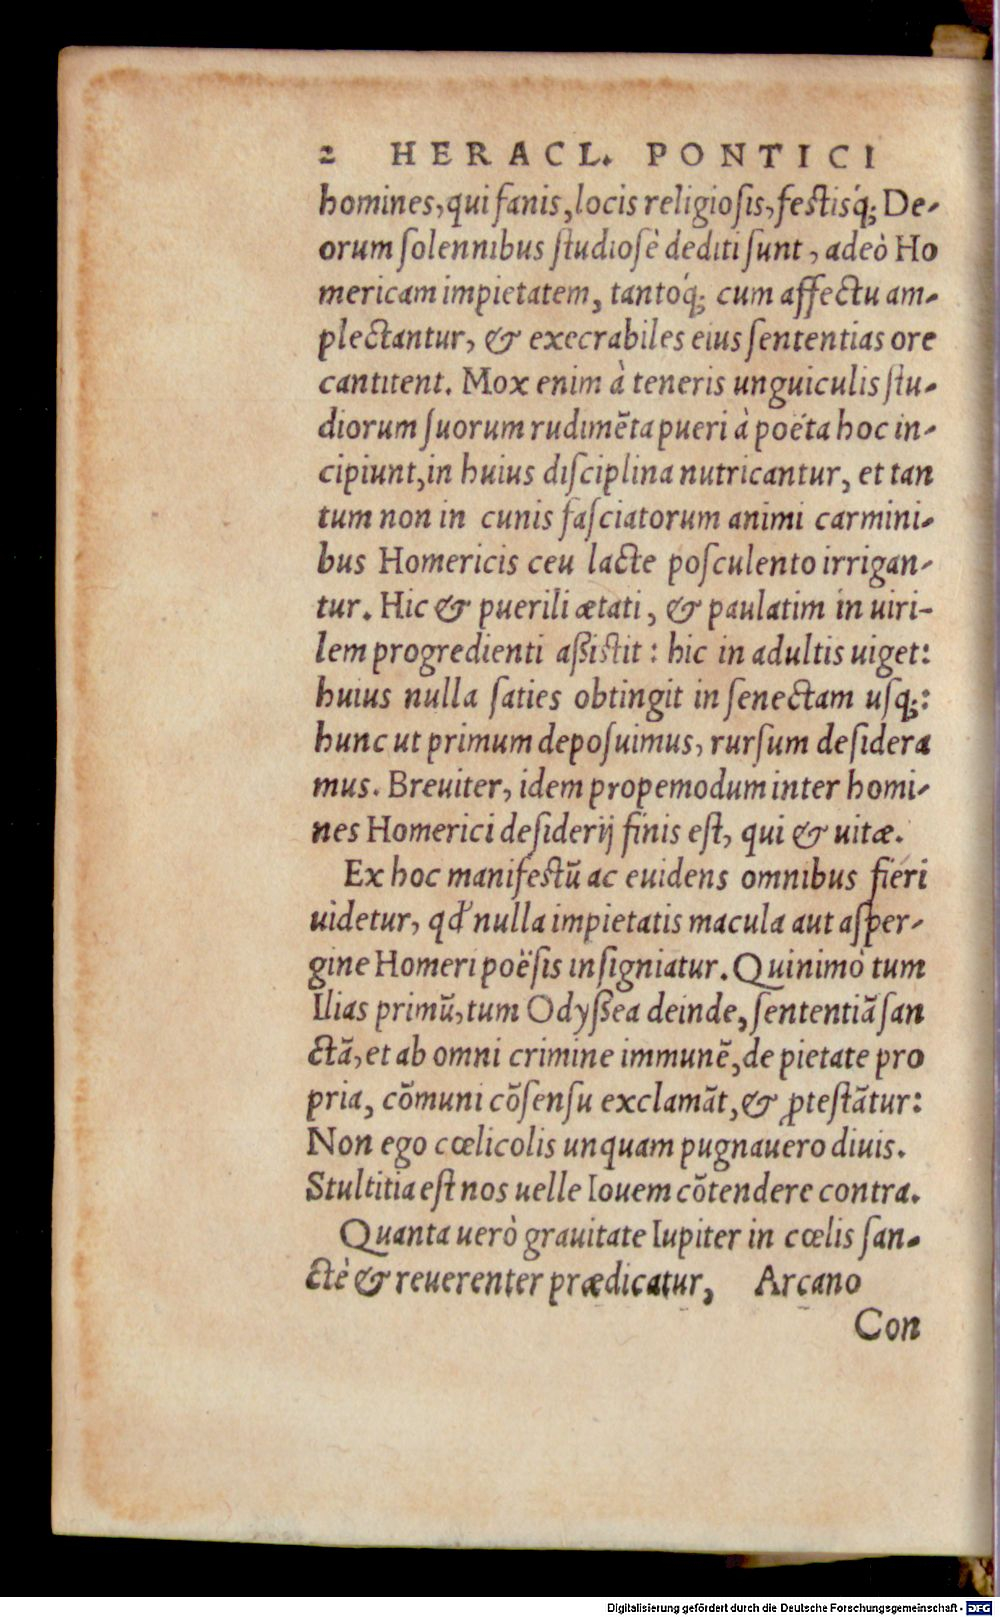 2 HERACL. PONTICI
homines, qui fanis, locis religiosis, festisq́; De-
orum solennibus studiosè dediti sunt, adeò Ho
mericam impietatem, tantoq́; cum affectu am-
plectantur, & execrabiles eius sententias ore
cantitent. Mox enim à teneris unguiculis stu-
diorum suorum rudimẽta pueri à poëta hoc in-
cipiunt, in huius disciplina nutricantur, et tan
tum non in cunis fasciatorum animi carmini-
bus Homericis ceu lacte posculento irrigan-
tur. Hic & puerili ætati, & paulatim in uiri-
lem progredienti aßistit: hic in adultis uiget:
huius nulla saties obtingit in senectam usq;:
hunc ut primum deposuimus, rursum desidera
mus. Breuiter, idem propemodum inter homi-
nes Homerici desiderij finis est, qui & uitæ.
Ex hoc manifestũ ac euidens omnibus fieri
uidetur, qđ nulla impietatis macula aut asper-
gine Homeri poësis insigniatur. Quinimò tum
Ilias primũ, tum Odyßea deinde, sententiã san
ctã, et ab omni crimine immunẽ, de pietate pro
pria, cõmuni cõsensu exclamãt, & ꝓtestãtur:
Non ego cœlicolis unquam pugnauero diuis.
Stultitia est nos uelle Iouem cõtendere contra.
Quanta uerò grauitate Iupiter in cœlis san-
ctè & reuerenter prædicatur, Arcano
Con
Digitalisierung gefördert durch die Deutsche Forschungsgemeinschaft - DFG